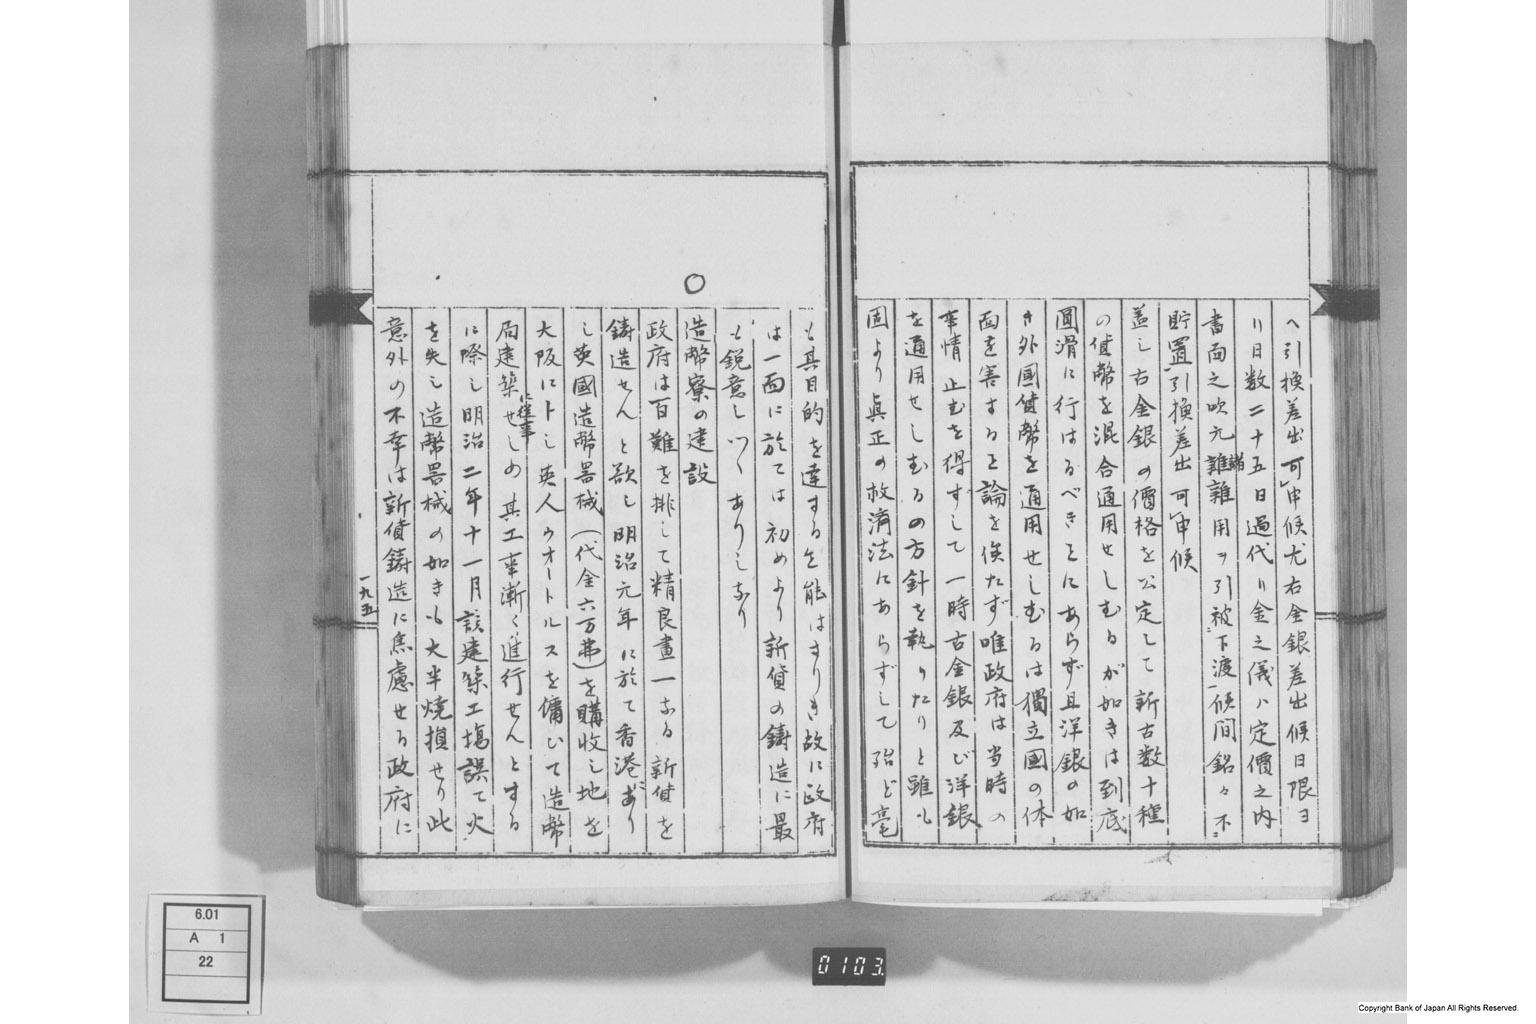 へ引換差出可申候尤右金銀差出候日限ヨ
リ日数二十五日過代リ金之儀ハ定價之内
書面之吹元諸雜用ヲ引被下渡候間銘々不
貯置引換差出可申候
蓋し古金銀の價格を公定して新古数十種
の貨幣を混合通用せしむるが如きは到底
圓滑に行はるべきことにあらず且洋銀の如
き外國貨幣を通用せしむるは獨立國の体
面を害すること論を俟たず唯政府は当時の
事情止むを得ずして一時古金銀及び洋銀
を通用せしむるの方針を執りたりと雖も
固より眞正の救濟法にあらずして殆ど毫
も其目的を達すること能はざりき故に政府
は一面に於ては初めより新貨の鋳造に最
も鋭意しつゝありしなり
○
造幣寮の建設
政府は百難を排して精良畫一なる新貨を
鋳造せんと欲し明治元年に於て香港にあり
し英國造幣器械(代金六万弗)を購收し地を
大阪に卜し英人ウオートルスを傭ひて造幣
局建築に従事せしめ其工事漸く進行せんとする
に際し明治二年十一月該建築工場誤て火
を失し造幣器械の如きも大半燒損せり此
意外の不幸は新貨鋳造に焦慮せる政府に
一九五
6.01
A 1
22
0103
Copyright Bank of Japan All Rights Reserved.